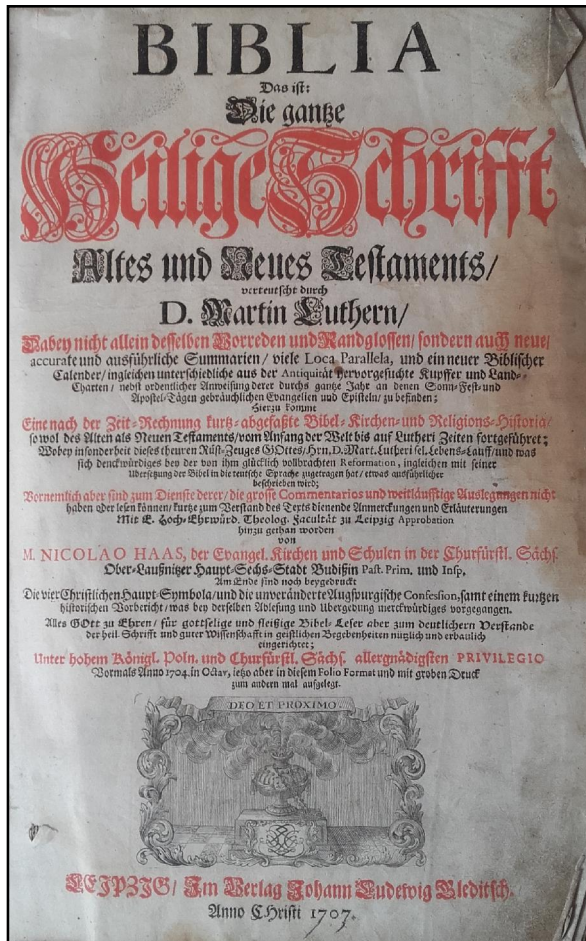 BIBLIA
Das ist:
Die gantze
Heilige Schrifft
Altes und Neues Testaments/
verteutscht durch
D. Martin Luthern/
Dabey nicht allein desselben Vorreden und Randglossen/ sondern auch neue/
accurate und ausführliche Summarien/ viele Loca Parallela, und ein neuer Biblischer
Calender/ ingleichen unterschiedliche aus der Antiquität hervorgesuchte Kupffer und Land-
Charten/ nebst ordentlicher Anweisung derer durchs gantze Jahr an denen Sonn-Fest-und
Apostel-Tägen gebräuchlichen Evangelien und Episteln/ zu befinden;
Hierzu komme
Eine nach der Zeit-Rechnung kurtz-abgefaßte Bibel-Kirchen-und Religions-Historia/
sowol des Alten als Neuen Testaments/ vom Anfang der Welt bis auf Lutheri Zeiten fortgeführet;
Wobey insonderheit dieses theuren Rüst-Zeuges GOttes/ Hrn. D. Mart. Lutheri sel. Lebens-Lauff/ und was
sich denckwürdiges bey der von ihm glücklich vollbrachten Reformation, ingleichen mit seiner
Ubersetzung der Bibel in die teutsche Sprache zugetragen hat/ etwas ausführlicher
beschrieben wird;
Vornemlich aber sind zum Dienste derer/ die grosse Commentarios und weitläufftige Auslegungen nicht
haben oder lesen können/ kurtze zum Verstand des Texts dienende Anmerckungen und Erläuterungen
Mit E. Hoch-Ehrwürd. Theolog. Facultät zu Leipzig Approbation
hinzu gethan worden
von
M. NICOLAO HAAS, der Evangel. Kirchen und Schulen in der Churfürstl. Sächs.
Ober-Laußnitzer Haupt-Sechs-Stadt Budißin Past. Prim. und Insp.
Am Ende sind noch beygedruckt
Die vier Christlichen Haupt-Symbola/ und die unveränderte Augspurgische Confession, samt einem kurtzen
historischen Vorbericht/ was bey derselben Ablesung und Ubergebung merckwürdiges vorgegangen.
Alles GOtt zu Ehren/ für gottselige und fleißige Bibel-Leser aber zum deutlichern Verstande
der heil. Schrifft und guter Wissenschafft in geistlichen Begebenheiten nützlich und erbaulich
eingerichtet;
Unter hohem Königl. Poln. und Churfürstl. Sächs. allergnädigsten PRIVILEGIO
Vormals Anno 1704. in Octav, ietzo aber in diesem Folio Format und mit groben Druck
zum andern mal aufgelegt.
DEO ET PROXIMO
LEIPZIG/ Im Verlag Johann Ludewig Gleditsch.
Anno CHristi 1707.